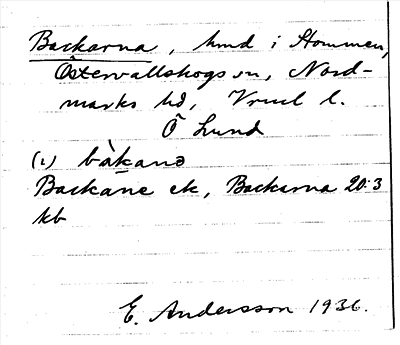 Backarna, hmd i Stommen,
Östervallskogs sn, Nord-
marks hd, Vrml l.
Ö Lund
(1) bàkanə
Backane ek, Backarna 20:3
kb
E. Andersson 1936.